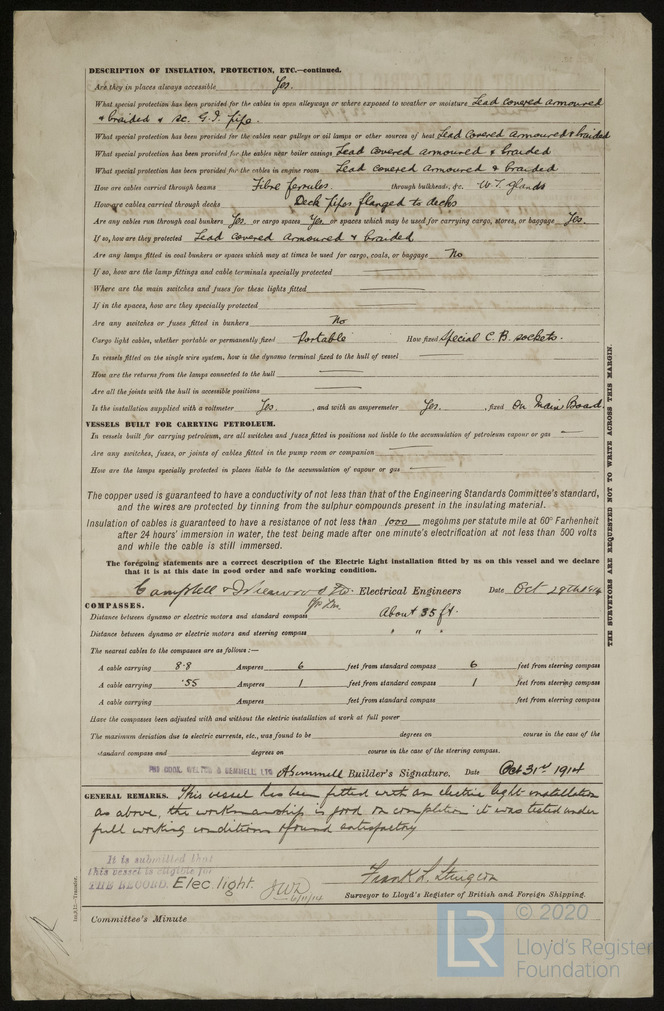 DESCRIPTION OF INSULATION, PROTECTION, ETC.—continued.
Are they in places always accessible Yes.
What special protection has been provided for the cables in open alleyways or where exposed to weather or moisture Lead covered armoured
& braided & sc. G.I. pipe.
What special protection has been provided for the cables near galleys or oil lamps or other sources of heat Lead covered armoured & braided
What special protection has been provided for the cables near boiler casings Lead covered armoured & braided
What special protection has been provided for the cables in engine room Lead covered armoured & braided
How are cables carried through beams Fibre ferrules. through bulkheads, &c. W.T. glands
How are cables carried through decks Deck pipes flanged to decks
Are any cables run through coal bunkers Yes. or cargo spaces Yes. or spaces which may be used for carrying cargo, stores, or baggage Yes.
If so, how are they protected Lead covered armoured & braided
Are any lamps fitted in coal bunkers or spaces which may at times be used for cargo, coals, or baggage No
If so, how are the lamp fittings and cable terminals specially protected
Where are the main switches and fuses for these lights fitted
If in the spaces, how are they specially protected
Are any switches or fuses fitted in bunkers No
Cargo light cables, whether portable or permanently fixed Portable How fixed Special C.B. sockets.
In vessels fitted on the single wire system, how is the dynamo terminal fixed to the hull of vessel
How are the returns from the lamps connected to the hull
Are all the joints with the hull in accessible positions
Is the installation supplied with a voltmeter Yes. , and with an amperemeter Yes. , fixed On Main Board.
VESSELS BUILT FOR CARRYING PETROLEUM.
In vessels built for carrying petroleum, are all switches and fuses fitted in positions not liable to the accumulation of petroleum vapour or gas
Are any switches, fuses, or joints of cables fitted in the pump room or companion
How are the lamps specially protected in places liable to the accumulation of vapour or gas
The copper used is guaranteed to have a conductivity of not less than that of the Engineering Standards Committee's standard,
and the wires are protected by tinning from the sulphur compounds present in the insulating material.
Insulation of cables is guaranteed to have a resistance of not less than 1000 megohms per statute mile at 60° Farhenheit
after 24 hours' immersion in water, the test being made after one minute's electrification at not less than 500 volts
and while the cable is still immersed.
The foregoing statements are a correct description of the Electric Light installation fitted by us on this vessel and we declare
that it is at this date in good order and safe working condition.
Campbell & Isherwood Ltd. Electrical Engineers Date Oct 29th 1914
COMPASSES.
Distance between dynamo or electric motors and standard compass About 35 ft.
Distance between dynamo or electric motors and steering compass " " "
The nearest cables to the compasses are as follows:—
A cable carrying 8.8 Amperes 6 feet from standard compass 6 feet from steering compass
A cable carrying .55 Amperes 1 feet from standard compass 1 feet from steering compass
A cable carrying Amperes feet from standard compass feet from steering compass
Have the compasses been adjusted with and without the electric installation at work at full power
The maximum deviation due to electric currents, etc., was found to be degrees on course in the case of the
standard compass and degrees on course in the case of the steering compass.
PRO COOK, WELTON & GEMMELL, LTD A Gemmell Builder's Signature. Date Oct 31st 1914
GENERAL REMARKS. This vessel has been fitted with an electric light installation
as above, the workmanship is good. On completion it was tested under
full working conditions & found satisfactory
It is submitted that
this vessel is eligible for
THE RECORD. Elec. light. JWD 6/11/14
Frank L. Sturgeon
Surveyor to Lloyd's Register of British and Foreign Shipping.
Committee's Minute
THE SURVEYORS ARE REQUESTED NOT TO WRITE ACROSS THIS MARGIN.
LR
© 2020
Lloyd's Register
Foundation